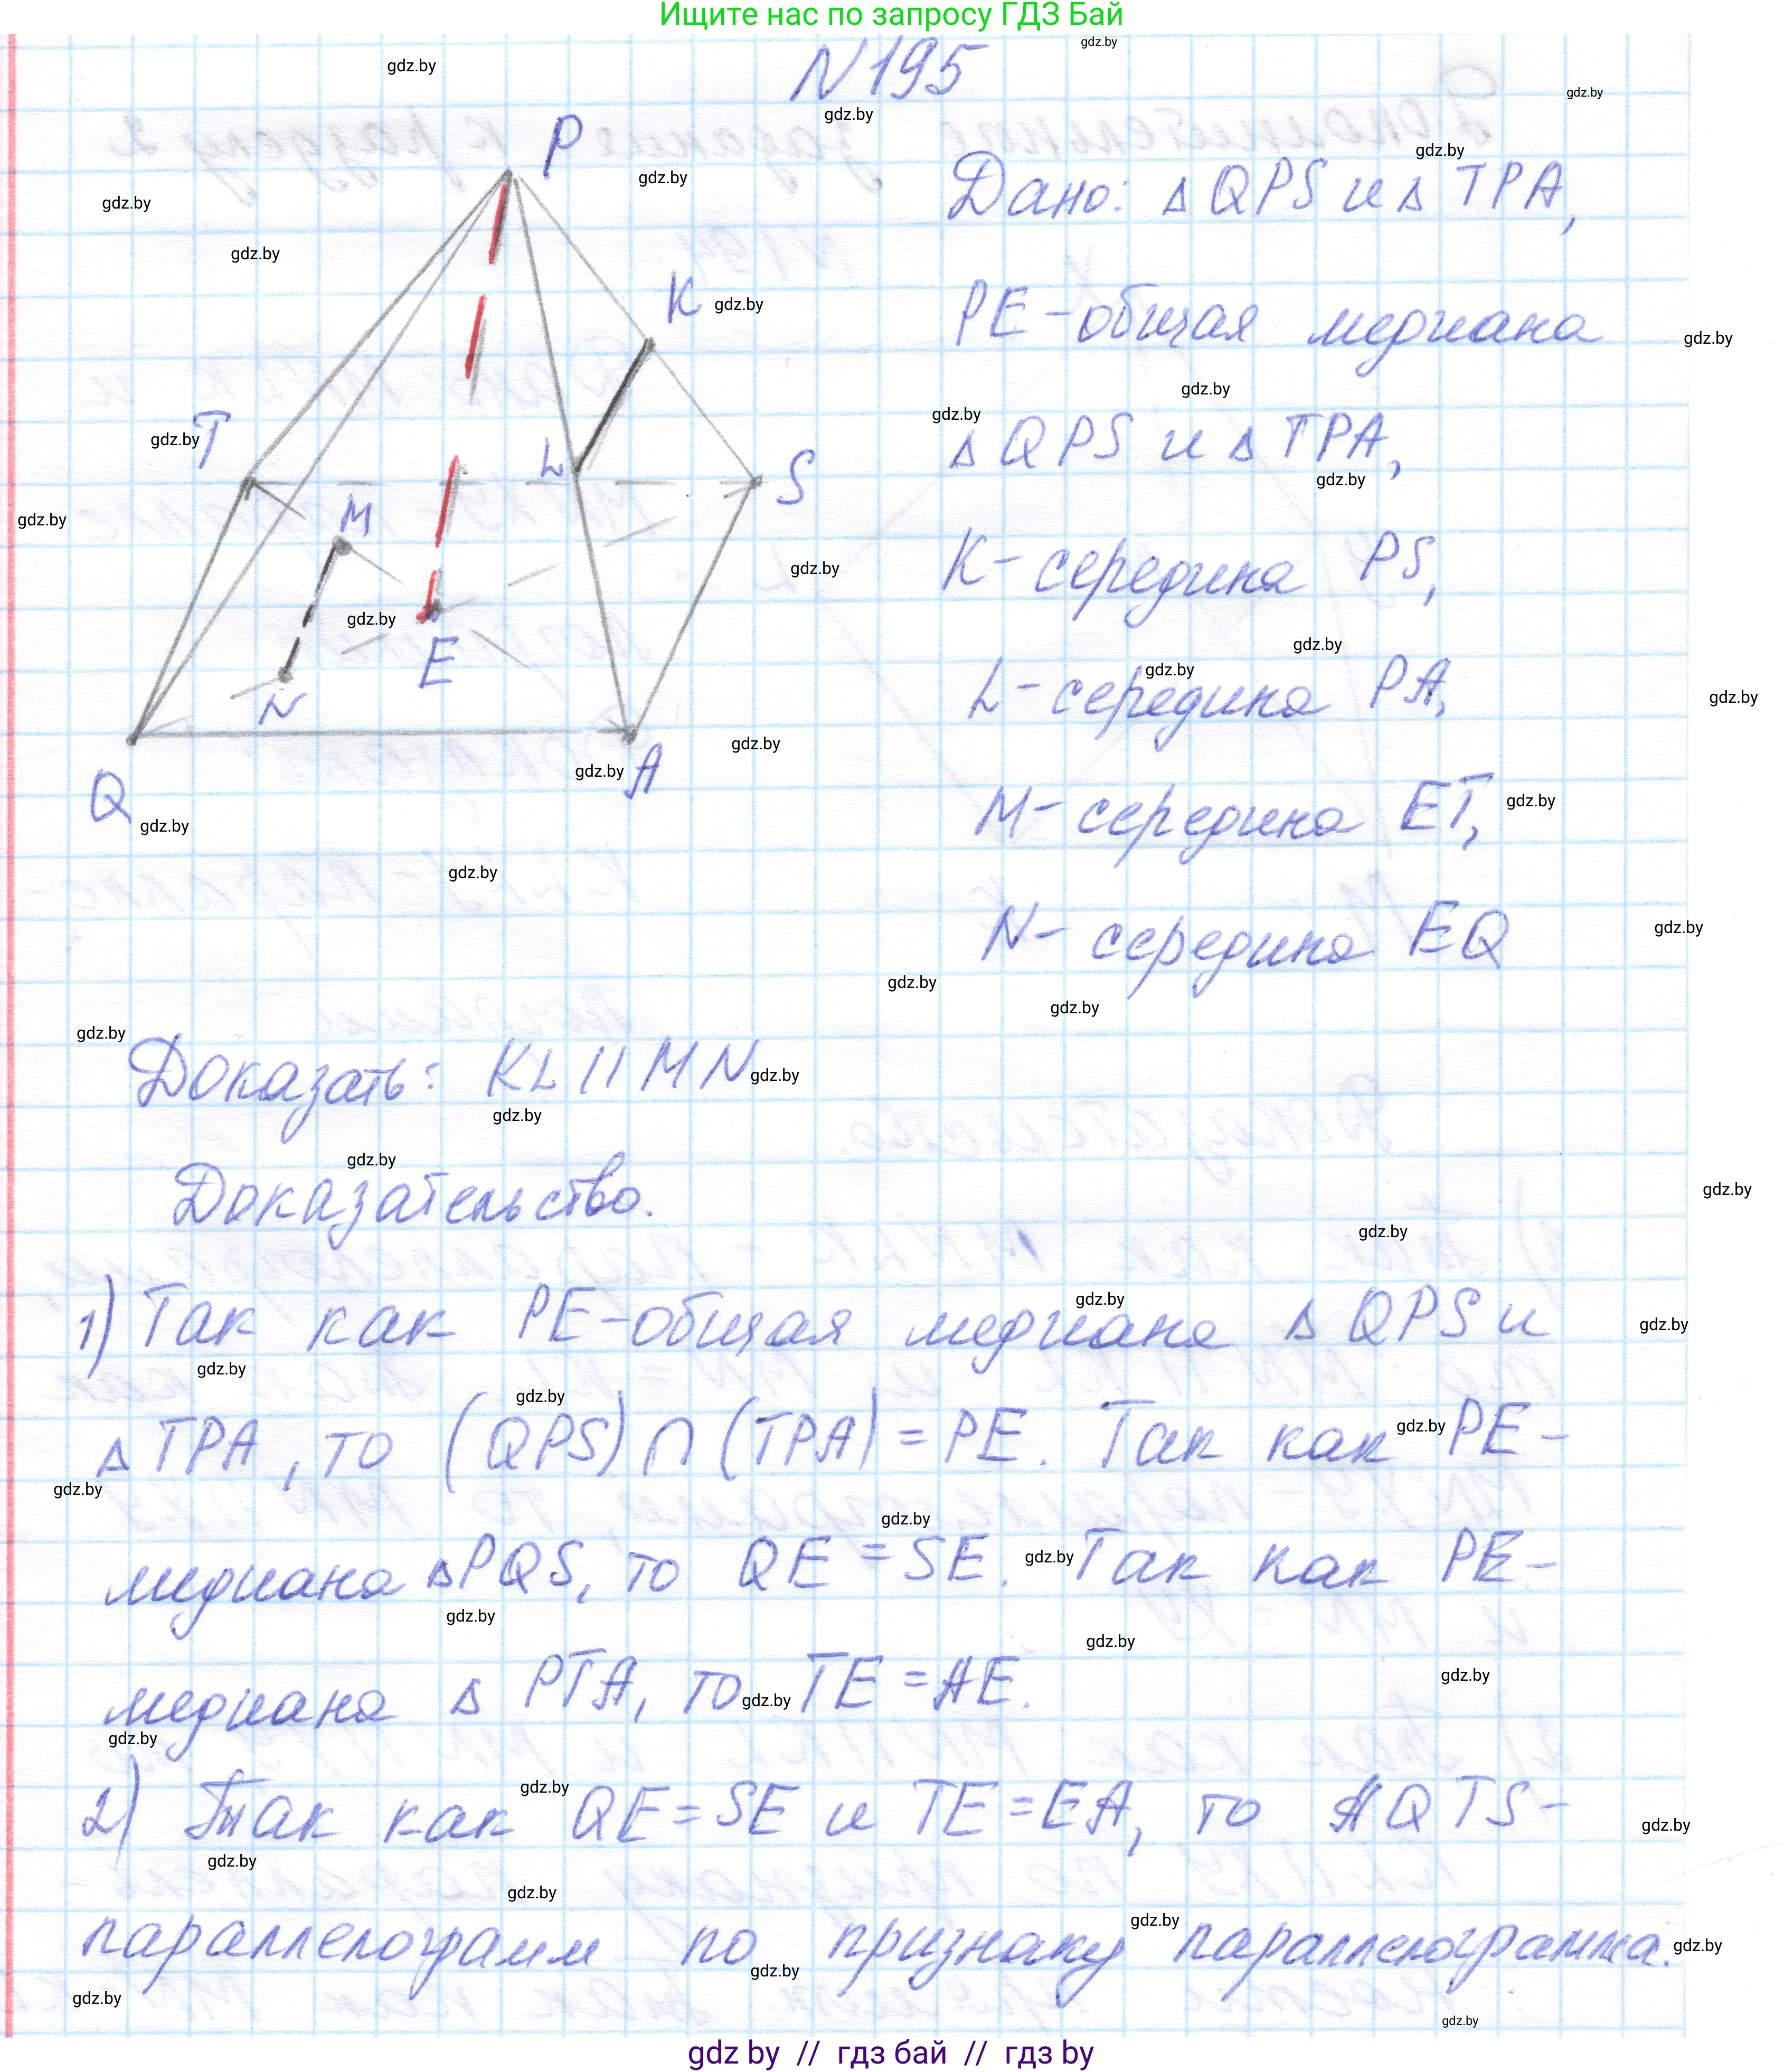 Ищите нас по запросу ГДЗ Бай
N195
P
K
T
L
S
M
E
N
Q
A
Дано: Δ QPS и Δ TPA,
PE - общая медиана
Δ QPS и Δ TPA,
K - середина PS,
L - середина PA,
M - середина ET,
N - середина EQ
Доказать: KL || MN
Доказательство.
1) Так как PE - общая медиана Δ QPS и
Δ TPA, то (QPS) ∩ (TPA) = PE. Так как PE -
медиана Δ PQS, то QE = SE. Так как PE -
медиана Δ PTA, то TE = AE.
2) Так как QE = SE и TE = EA, то AQTS -
параллелограмм по признаку параллелограмма.
gdz by // гдз бай // гдз by